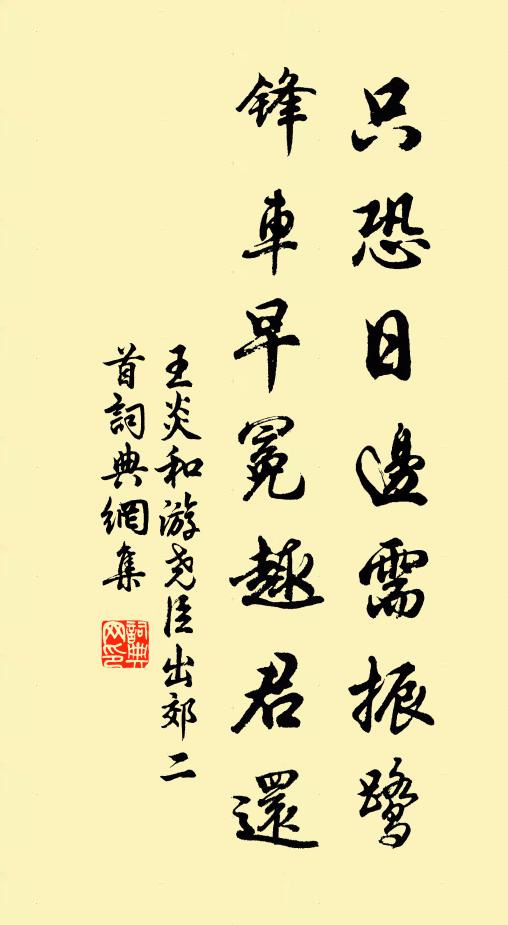 只恐日邊需振鷺
鋒車早冕趣君還
王炎和游堯臣出郊二
首詞典網集
詞典
网印